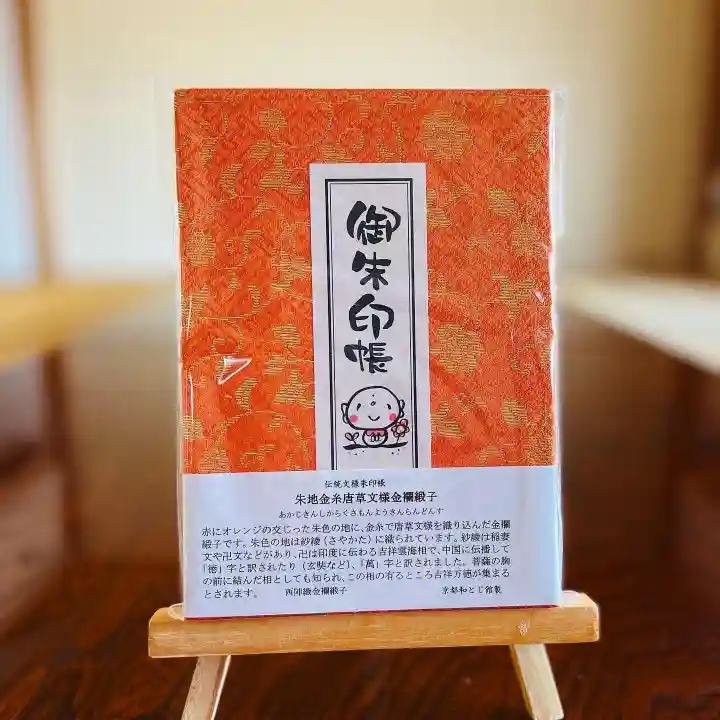 御朱印帳
伝統文様朱印帳
朱地金糸唐草文様金襴緞子
あかじきんしからくさもんようさんらんどんす
赤にオレンジの交じった朱色の地に、金糸で唐草文様を織り込んだ金襴
緞子です。朱色の地は紗綾（さやかた）に織られています。紗綾は稲妻
文や卍文などがあり、卍は印度に伝わる吉祥雲海相で、中国に伝播して
「徳」字と訳されたり（玄奘など）、「萬」字と訳されました。菩薩の胸
の前に結んだ相としても知られ、この相の有るところ吉祥万徳が集まる
とされます。
西陣織金襴緞子
京都和とじ館製